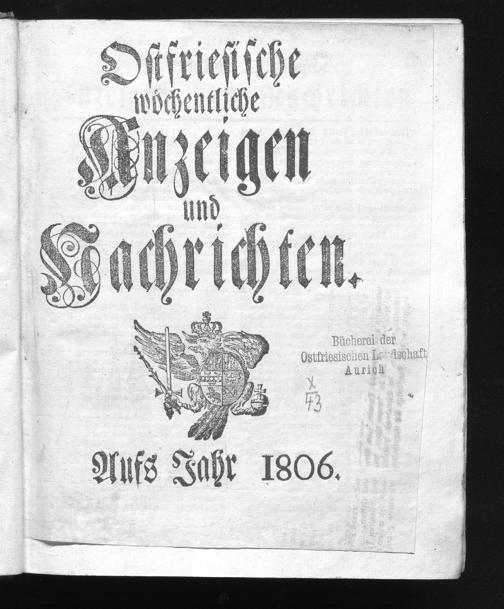 Ostfriesische
wöchentliche
Anzeigen
und
Nachrichten.
Bücherei der
Ostfriesischen Landschaft
Aurich
X
43
Aufs Jahr 1806.